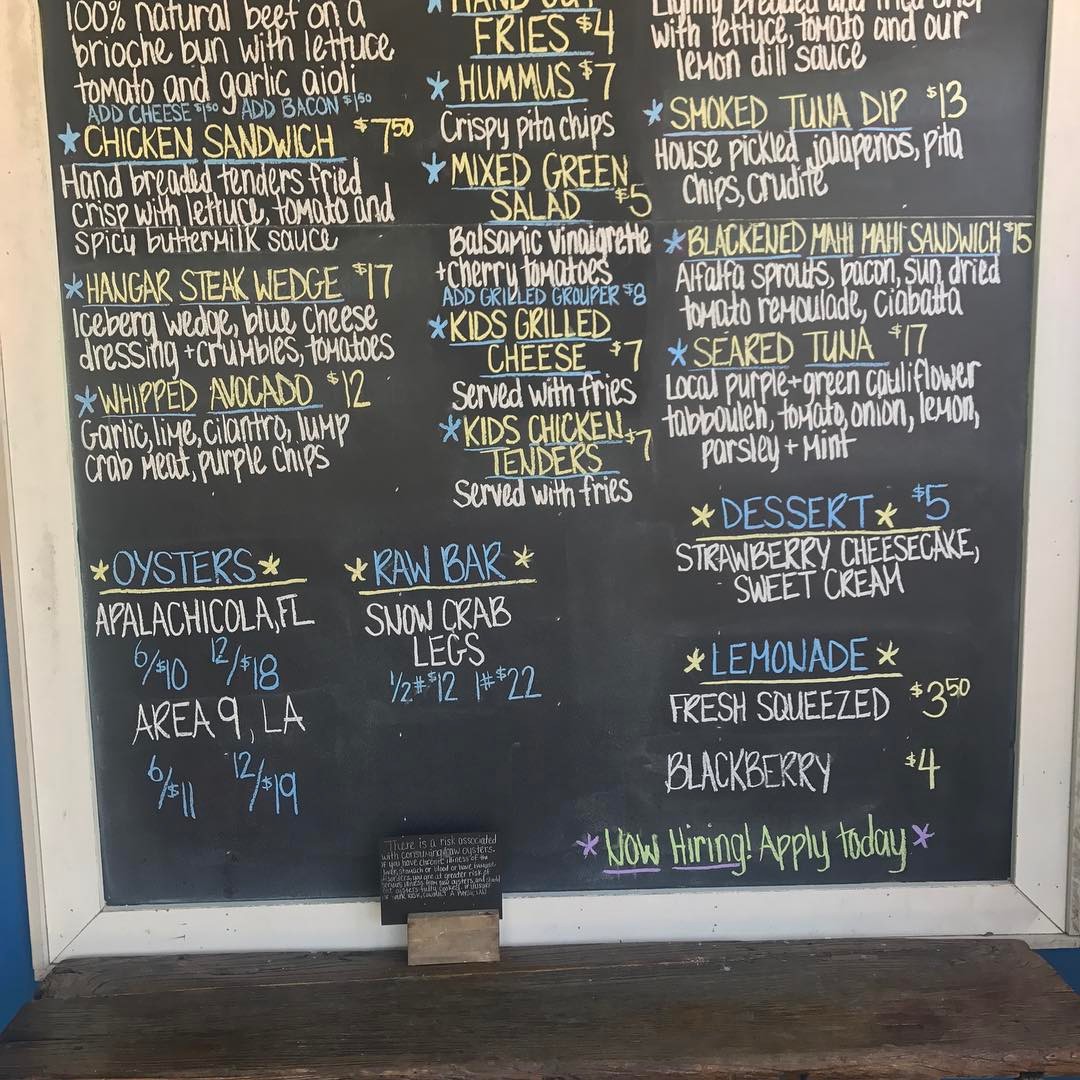 100% natural beef on a
brioche bun with lettuce
tomato and garlic aioli
ADD CHEESE $1.50 ADD BACON $1.50
* CHICKEN SANDWICH $7.50
Hand breaded tenders fried
crisp with lettuce, tomato and
spicy buttermilk sauce
* HANGAR STEAK WEDGE $17
Iceberg wedge, blue cheese
dressing + crumbles, tomatoes
* WHIPPED AVOCADO $12
Garlic, lime, cilantro, lump
crab meat, purple chips
* OYSTERS *
APALACHICOLA, FL
6/$10 12/$18
AREA 9, LA
6/$11 12/$19
HAND CUT
FRIES $4
* HUMMUS $7
Crispy pita chips
* MIXED GREEN
SALAD $5
Balsamic vinaigrette
+ cherry tomatoes
ADD GRILLED GROUPER $8
* KIDS GRILLED
CHEESE $7
Served with fries
* KIDS CHICKEN
TENDERS $7
Served with fries
* RAW BAR *
SNOW CRAB
LEGS
1/2# $12 1# $22
Lightly breaded and fried crisp
with lettuce, tomato and our
lemon dill sauce
* SMOKED TUNA DIP $13
House pickled jalapenos, pita
chips, crudite
* BLACKENED MAHI MAHI SANDWICH $15
Alfalfa sprouts, bacon, sun dried
tomato remoulade, ciabatta
* SEARED TUNA $17
Local purple + green cauliflower
tabbouleh, tomato, onion, lemon,
parsley + mint
* DESSERT * $5
STRAWBERRY CHEESECAKE,
SWEET CREAM
* LEMONADE *
FRESH SQUEEZED $3.50
BLACKBERRY $4
* Now Hiring! Apply today *
There is a risk associated
with consuming raw oysters.
If you have chronic illness of the
liver, stomach or blood or have immune
disorders, you are at greater risk of
serious illness from raw oysters, and should
eat oysters fully cooked. If unsure
of your risk, consult a physician